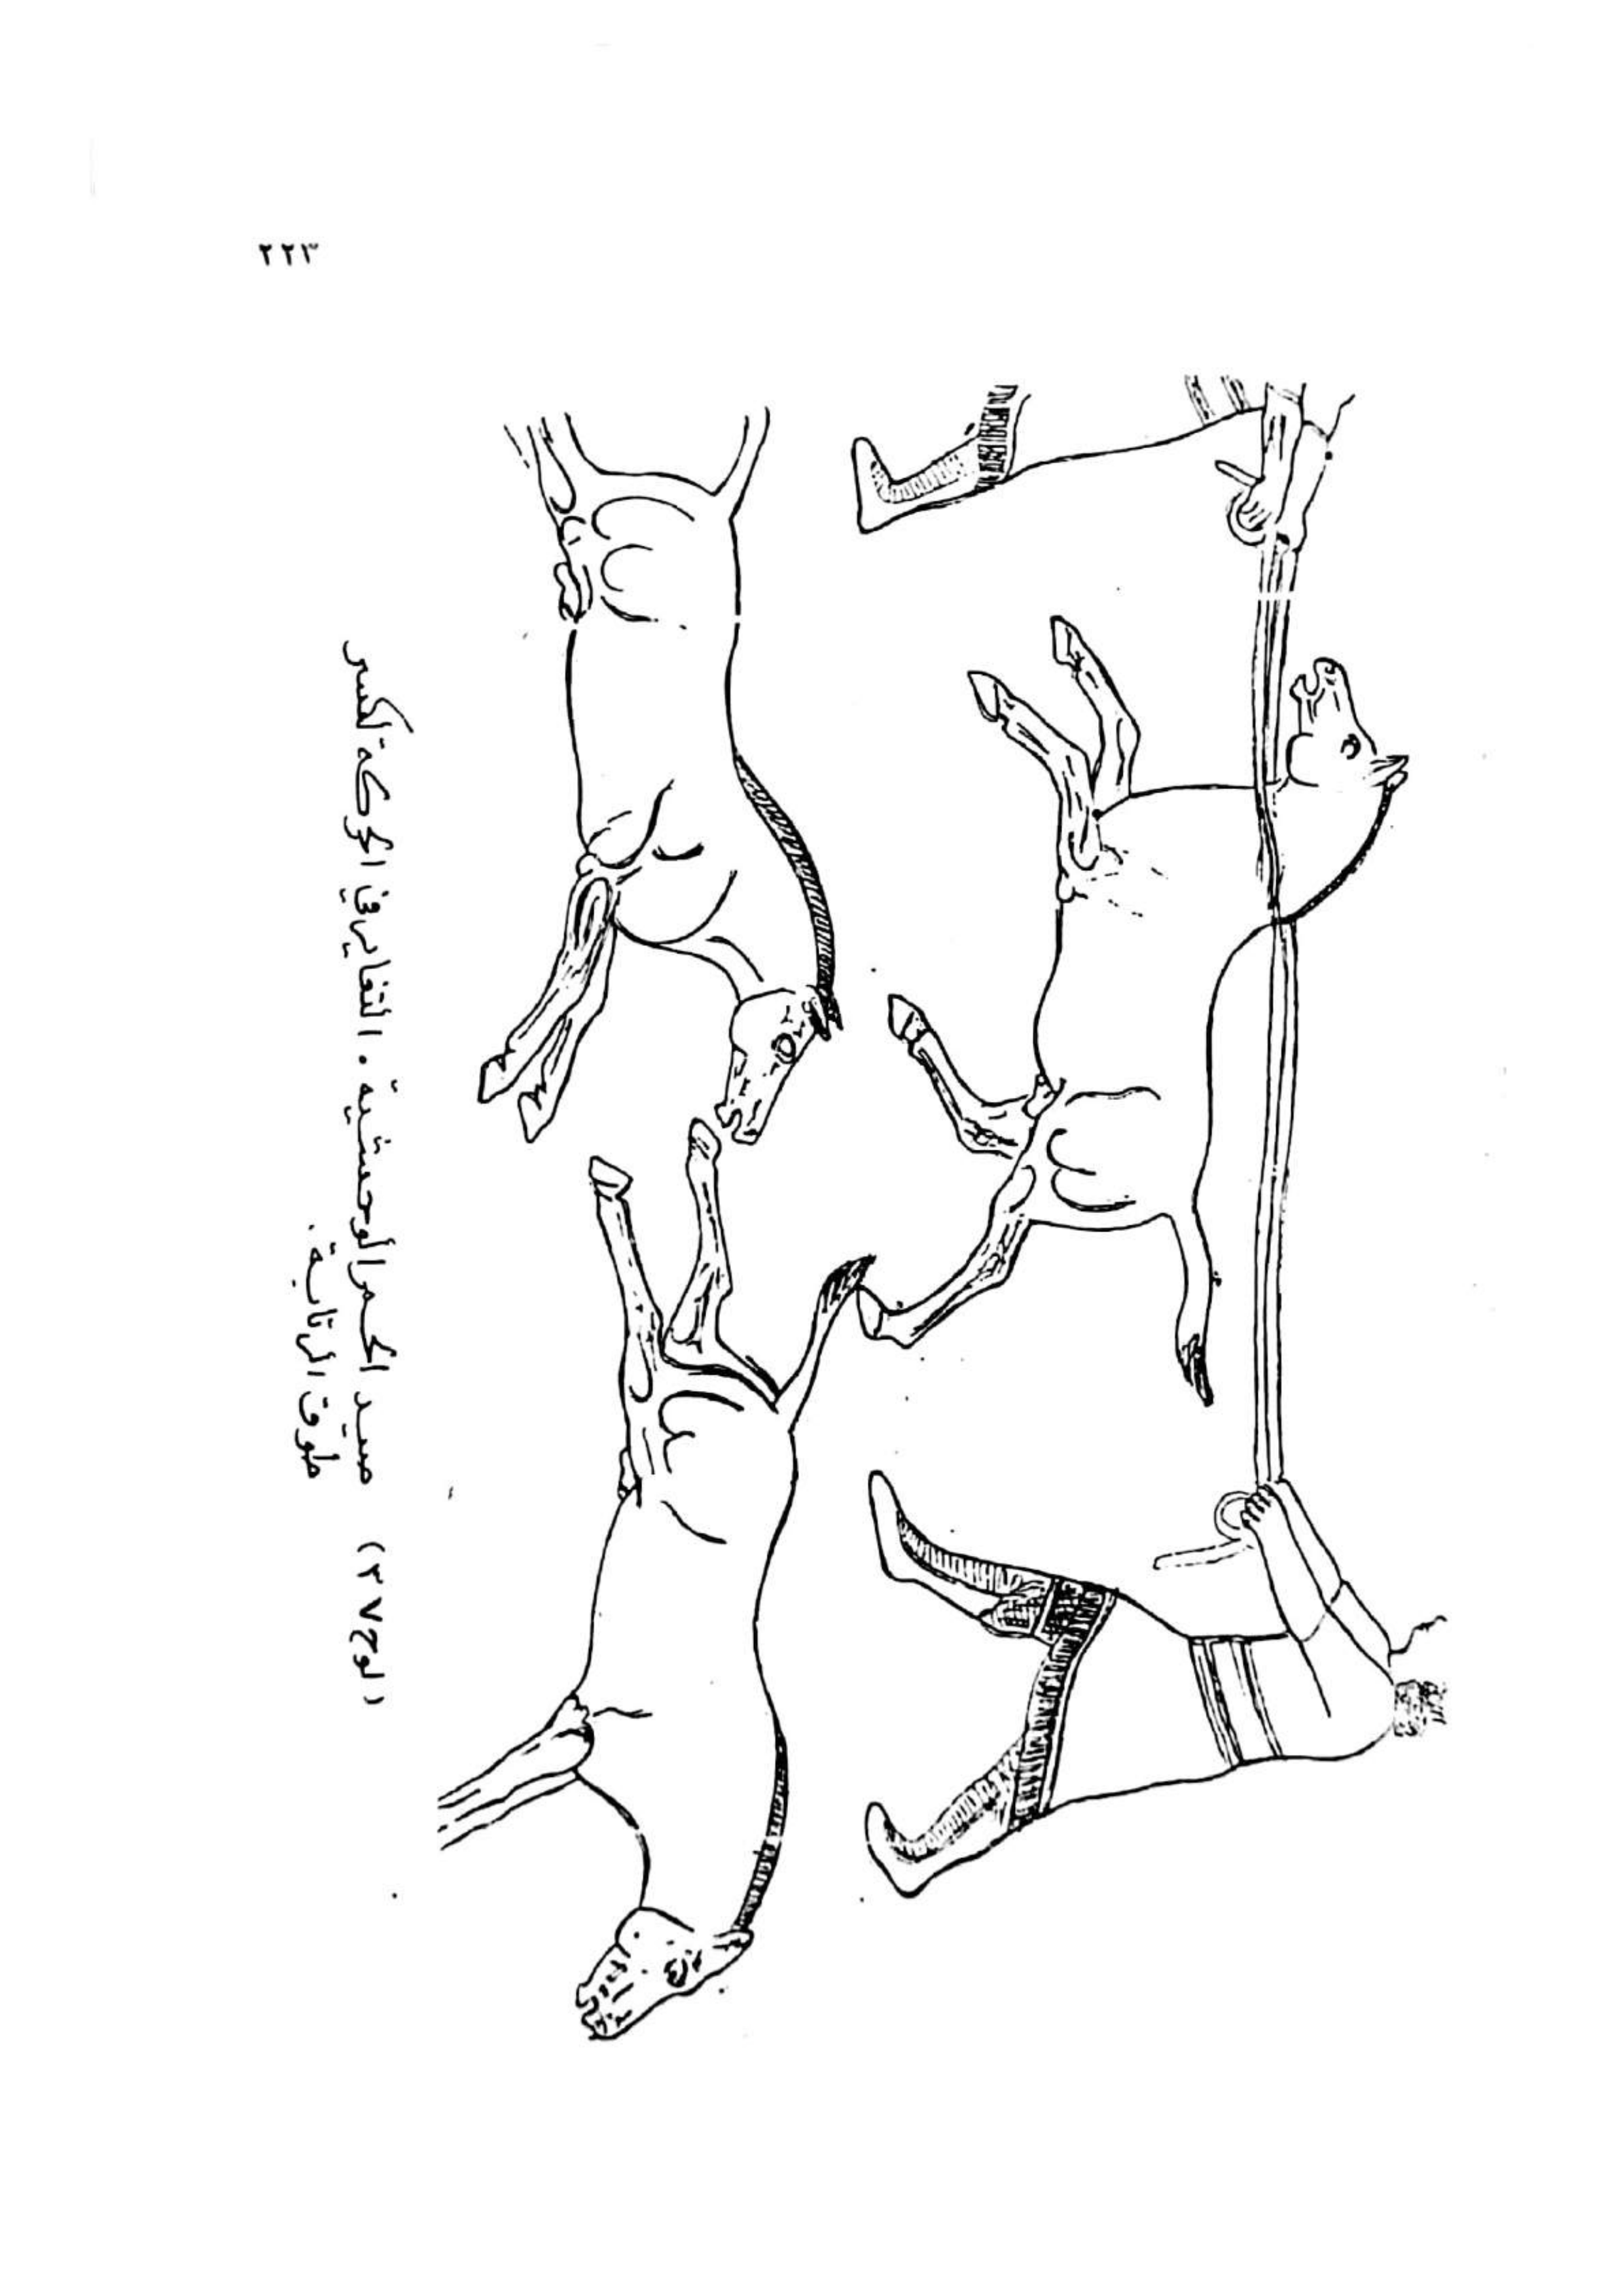 ٢٢٣
(لوح ٢٧) صيد الحمر الوحشية. التغاير في الحركة لكسر
طوق الرتابة.